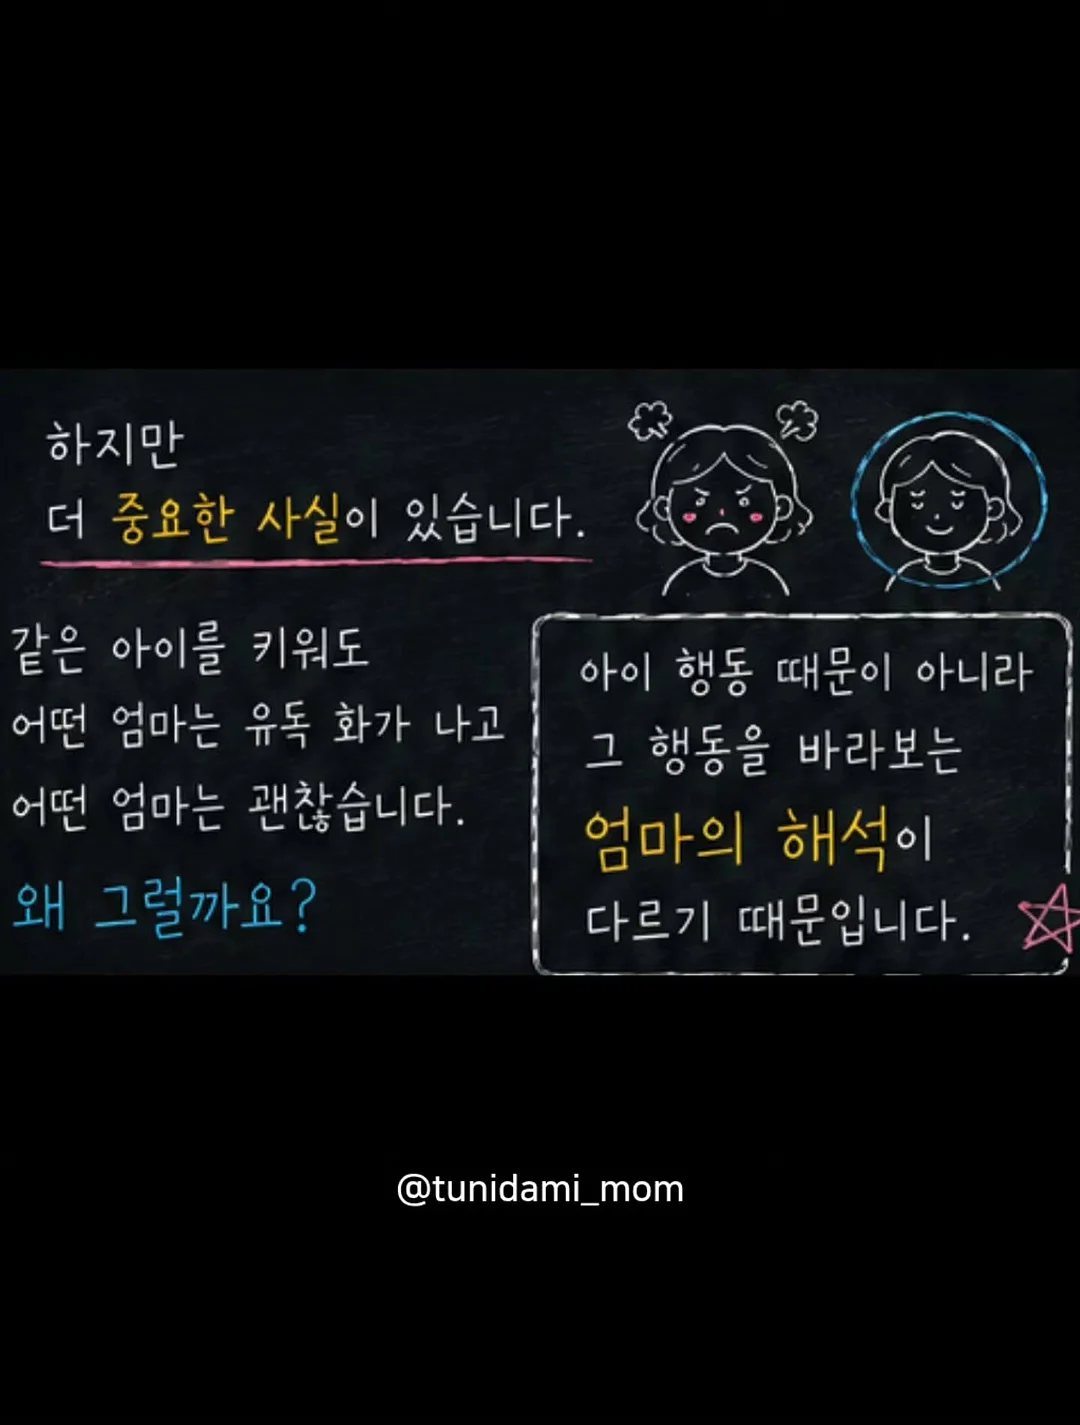 하지만
더 중요한 사실이 있습니다.
같은 아이를 키워도
어떤 엄마는 유독 화가 나고
어떤 엄마는 괜찮습니다.
왜 그럴까요?
아이 행동 때문이 아니라
그 행동을 바라보는
엄마의 해석이
다르기 때문입니다.
@tunidami_mom